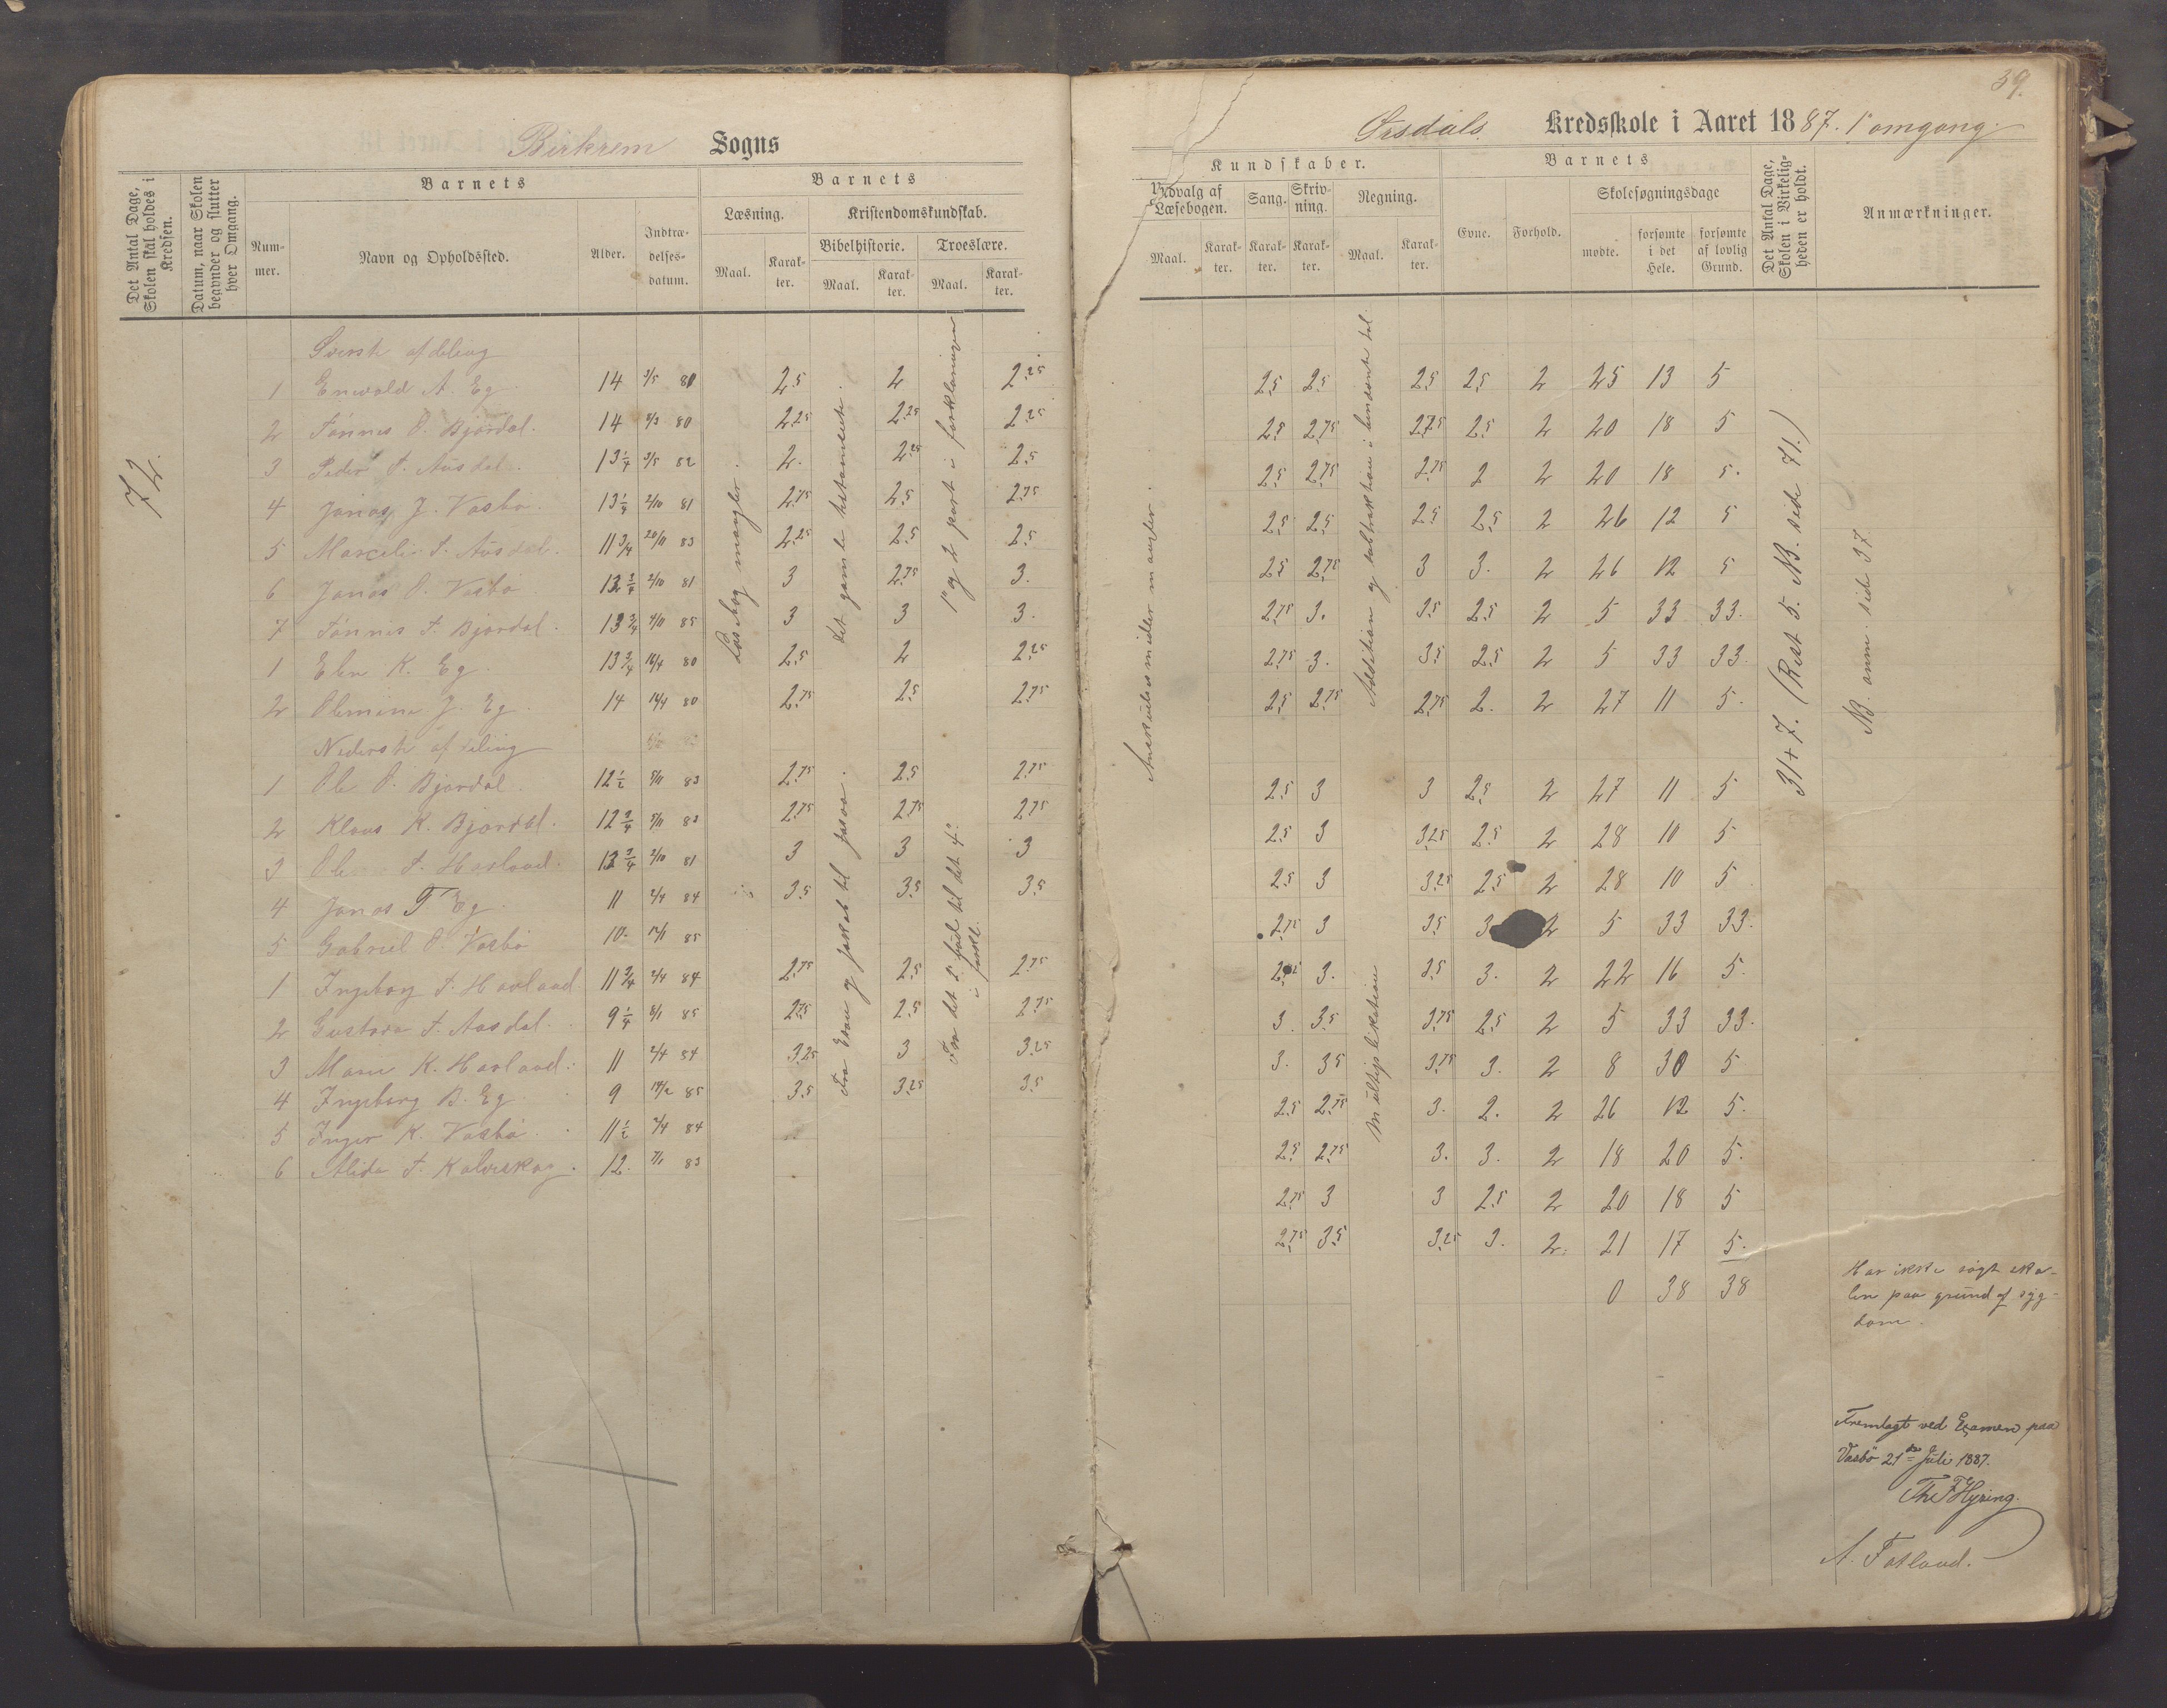 39.
Birkrem Sogns
Örsdals Kredsskole i Aaret 1887. 1ᵉ omgang.
Det Antal Dage, Skolen skal holdes i Kredsen.
Datum, naar Skolen begynder og slutter hver Omgang.
Barnets
Nummer.
Navn og Opholdssted.
Alder.
Indtrædelsesdatum.
Barnets
Læsning.
Kristendomskundskab.
Bibelhistorie.
Troeslære.
Maal.
Karakter.
Maal.
Karakter.
Maal.
Karakter.
Kundskaber.
Udvalg af Læsebogen.
Sang.
Skrivning.
Regning.
Maal.
Karakter.
Karakter.
Karakter.
Maal.
Karakter.
Barnets
Evne.
Forhold.
Skolesøgningsdage
mødte.
forsømte i det Hele.
forsømte af lovlig Grund.
Det Antal Dage, Skolen i Virkeligheden er holdt.
Anmærkninger.
72.
Øverste afdeling
1 Enevald A. Eg 14 3/5 80 2.5 2 2.25
2 Tönnes O. Bjordal. 14 8/3 80 2.25 2.25 2.25
3 Peder T. Ausdal. 13 1/4 3/5 82 2. 2.25 2.5
4 Jonas J. Vasbø. 13 1/4 2/10 81 2.75 2.5 2.75
5 T. Ausdal. 11 3/4 20/11 83 2.25 2.5 2.5
6 Jonas O. Vasbø 2/10 81 3 2.75 3.
7 Tönnes T. Bjordal. 4/11 85 3 3 3.
1 K. Eg. 13 3/4 16/4 80 2.5 2 2.25
2 Olemine J. Eg. 14 14/4 80 2.75 2.5 2.75
Nederste afdeling
1 Ole O. Bjordal. 12 1/2 5/11 83 2.75 2.5 2.75
2 Klaus K. Bjordal. 12 3/4 5/11 83 2.75 2.75 2.75
3 T. Havland. 2/10 81 3 3 3
4 Jonas T. Eg. 11 2/4 84 3.5 3.5 3.5
5 Gabriel O. Vasbø 10 85
1 Ingeborg T. Havland 11 3/4 2/4 84 2.75 2.5 2.75
2 Gustava T. Aasdal. 9 1/4 8/1 85 2.75 2.5 2.75
3 K. Havland. 11 2/4 84 3.25 3 3.25
4 Ingeborg B. Eg. 9 85 3.5 3.25 3.5
5 Inger K. Vasbø. 11 1/2 84
6 Alida T. Kalveskag. 12. 7/1 83
Læsebog mangler.
Det gamle testamente.
1ᵉ og 2 part i forklaringen
Fra Esau og Jakob til
Fra det 2 bud til det 4ᵉ i forkl.
mangler.
Addition og subtraktion i benævnte tal.
Multiplikation
2.5 2.5 2.5 2.5 2 25 13 5
2.5 2.75 2.75 2.5 2 20 18 5
2.5 2.75 2.75 2 2 20 18 5.
2.5 2.5 2.5 2.5 2 26 12 5
2.5 2.75 3 3. 2 26 12 5
2.75 3. 3.5 2.5 2 5 33 33.
2.75 3. 3.5 2.5 2 5 33 33.
2.5 2.75 2.75 2. 2 27 11 5.
2.5 3 3 2.5 2 27 11 5
2.5 3 3.25 2.5 2 28 10 5
2.5 3 3.25 2.5 2 28 10 5
2.75 3 3.5 3 2 5 33 33.
3. 3.5 3. 2 22 16 5.
3. 3.5 3.75 2.5 2 5 33 33.
3. 3.5 3.75 3. 2 8 30 5
2.5 2.75 3. 2. 2 26 12 5.
2.5 2.75 3. 3. 2 18 20 5.
2.75 3 3 2.5 2 20 18 5
2.75 3.5 3.25 3. 2. 21 17 5.
0 38 38
31 + 7. (Rest 5. NB. side 71.)
NB. anm. side 37
Har ikke søgt sko-
len paa grund af syg-
dom.
Fremlagt ved Examen paa
Vasbö 21de Juli 1887.
Hysing.